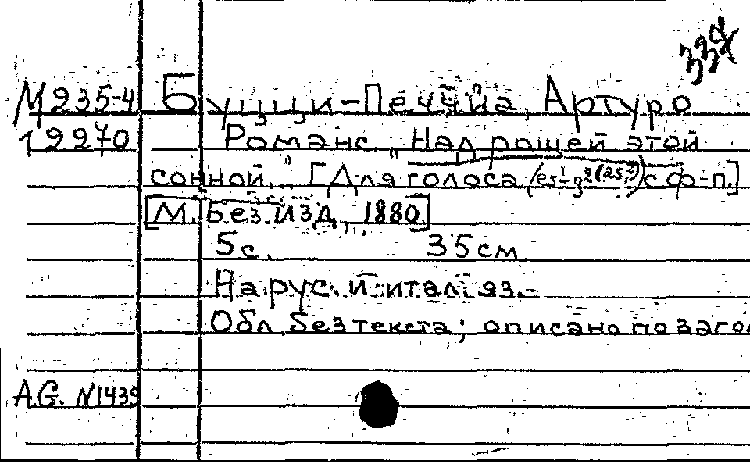 337
М 235-4 Буцци-Печчиа, Артуро
1 2270 Романс „Над рощей этой
сонной..." [Для голоса (es¹-g²(as²)) с ф-п.]
[М.] Без изд., 1880]
5 с. 35 см
На рус. и итал. яз.-
Обл. без текста; описано по загол
A.G. N1439